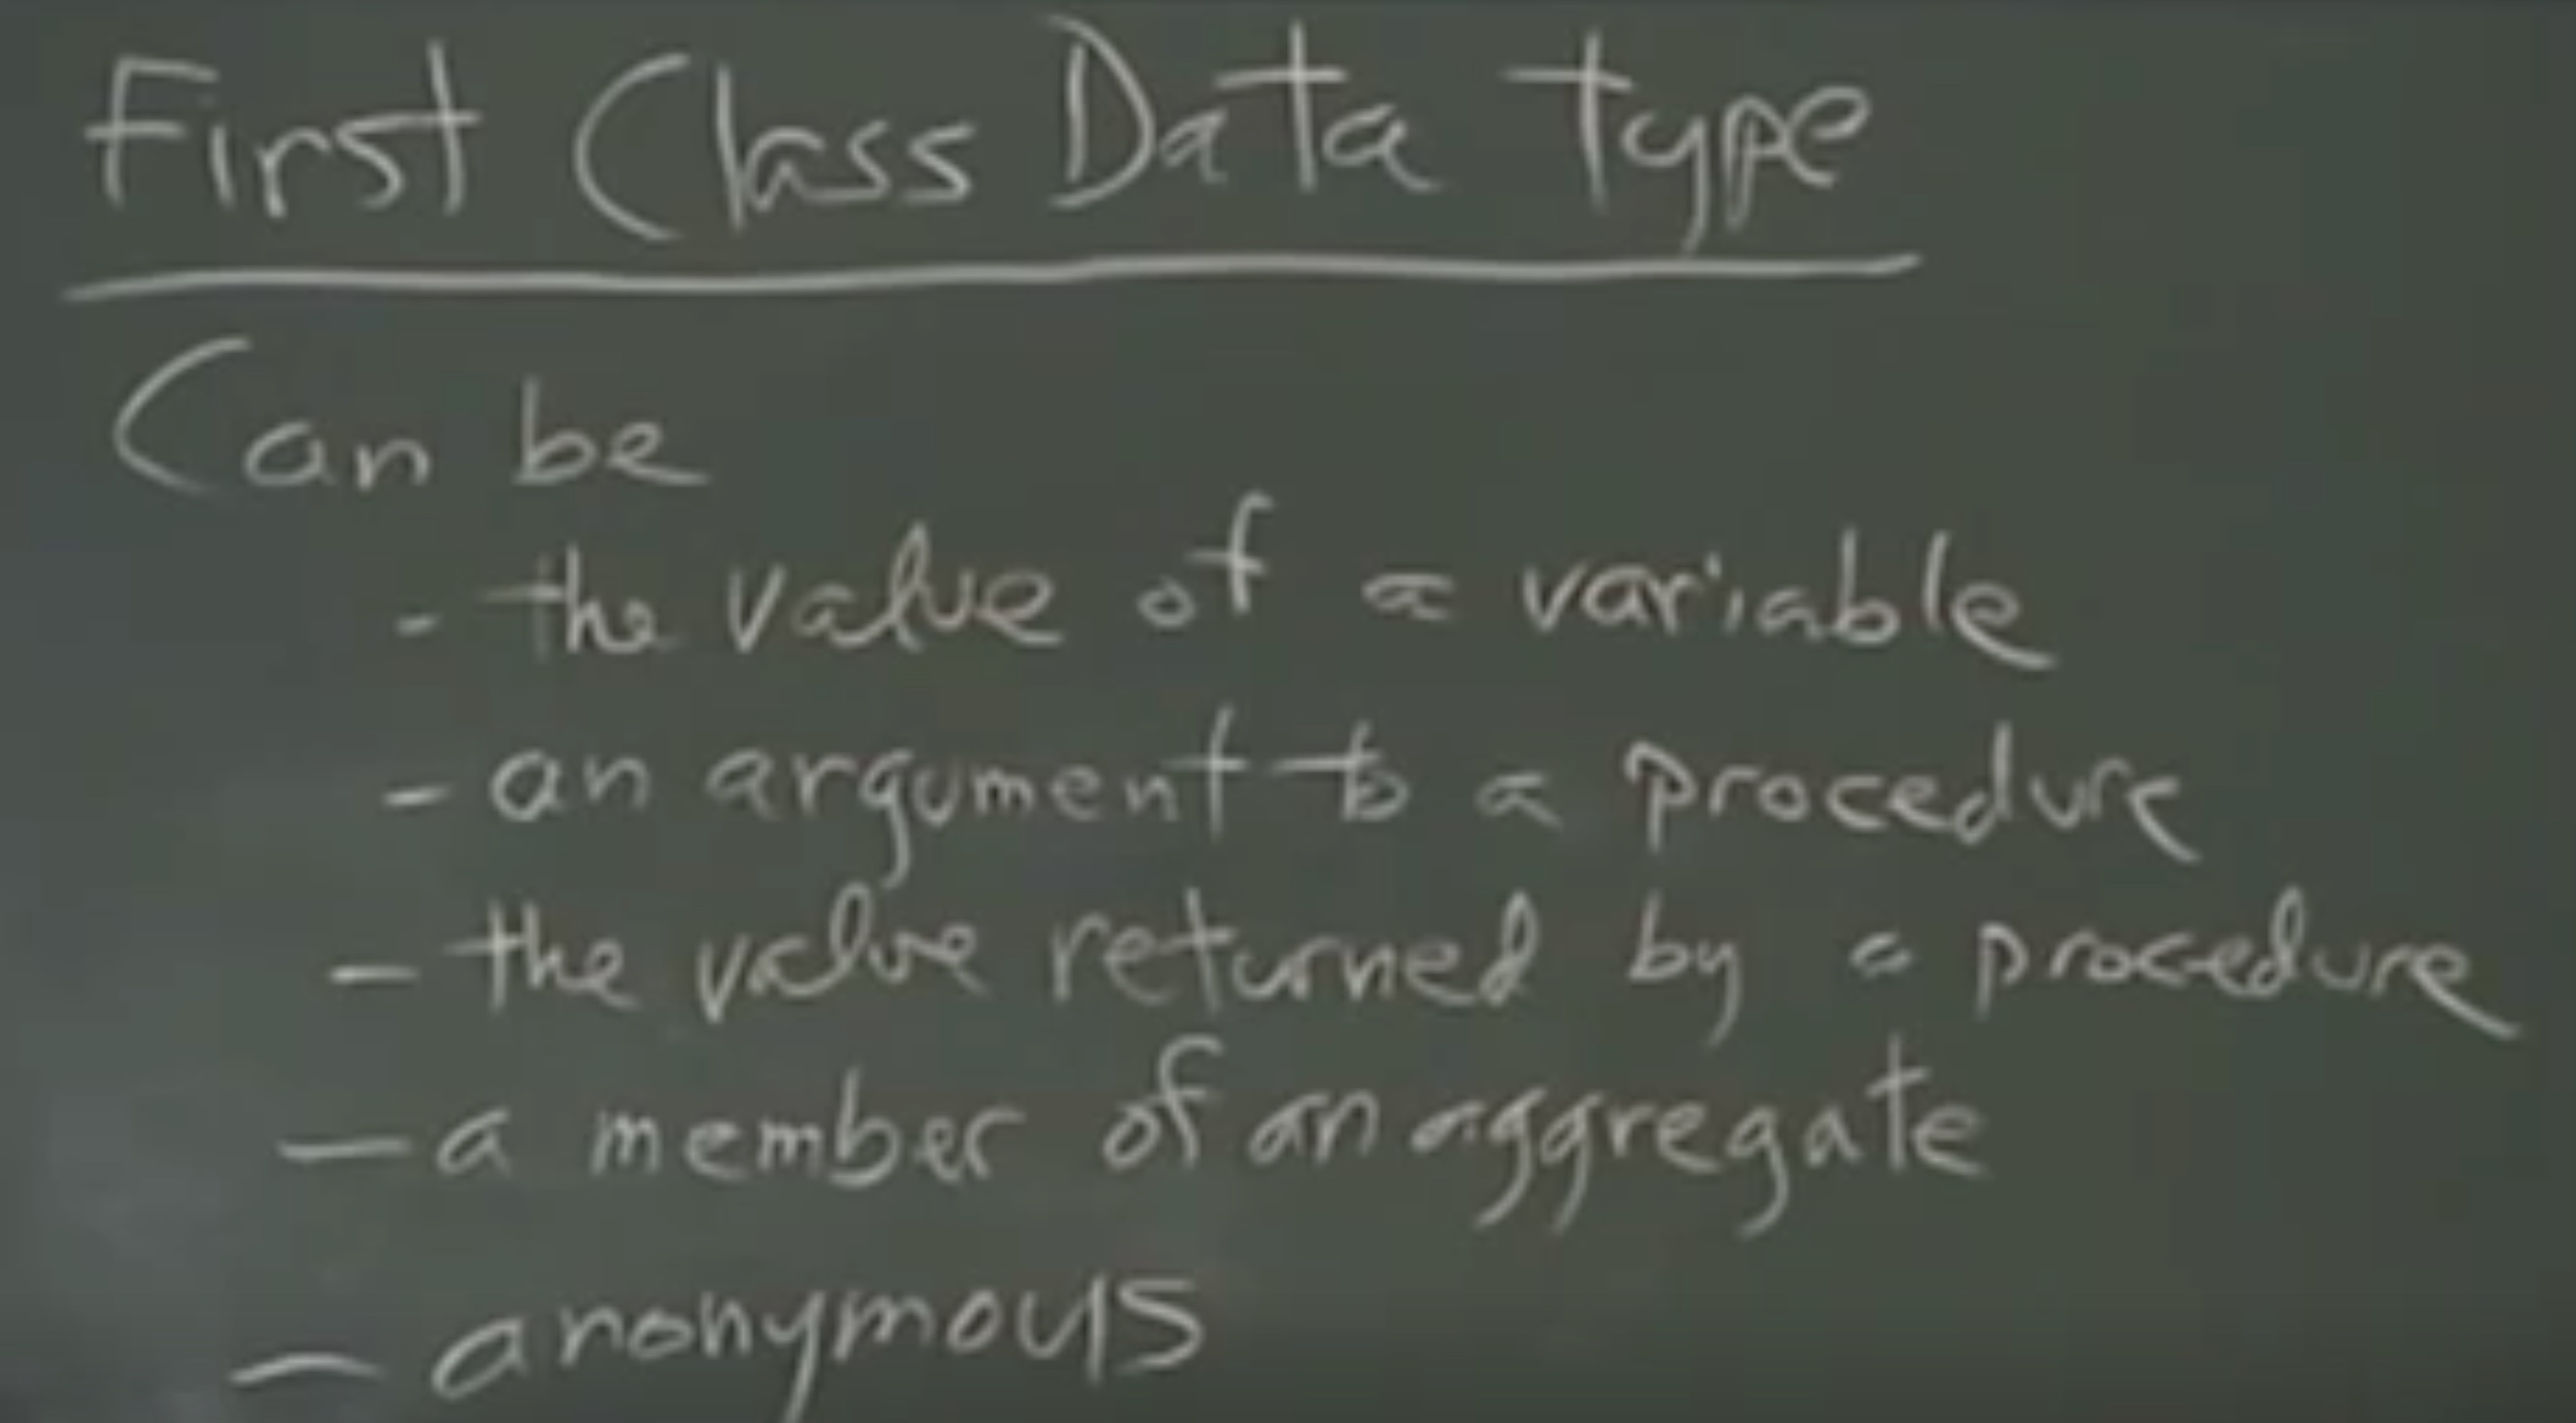 First Class Data Type
Can be
- the value of a variable
- an argument to a procedure
- the value returned by a procedure
- a member of an aggregate
- anonymous